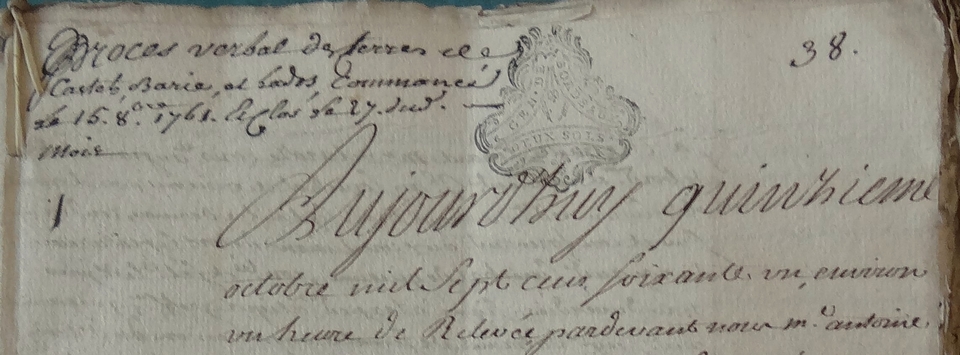 Proces verbal de terres de
Castets, Barie, et bados, Commancé
le 15. 8.bre 1761. le clos le 27. dud.
Mois
38.
GEN. DE BORDEAUX
DEUX SOLS
1
Aujourdhuy quinzieme
octobre mil Sept cens soixante un, environ
un heure de Relevée pardevant nous m.e antoine